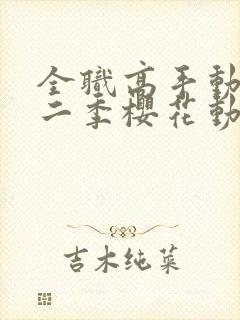 全職高手動
二季櫻花動
吉木纯菜